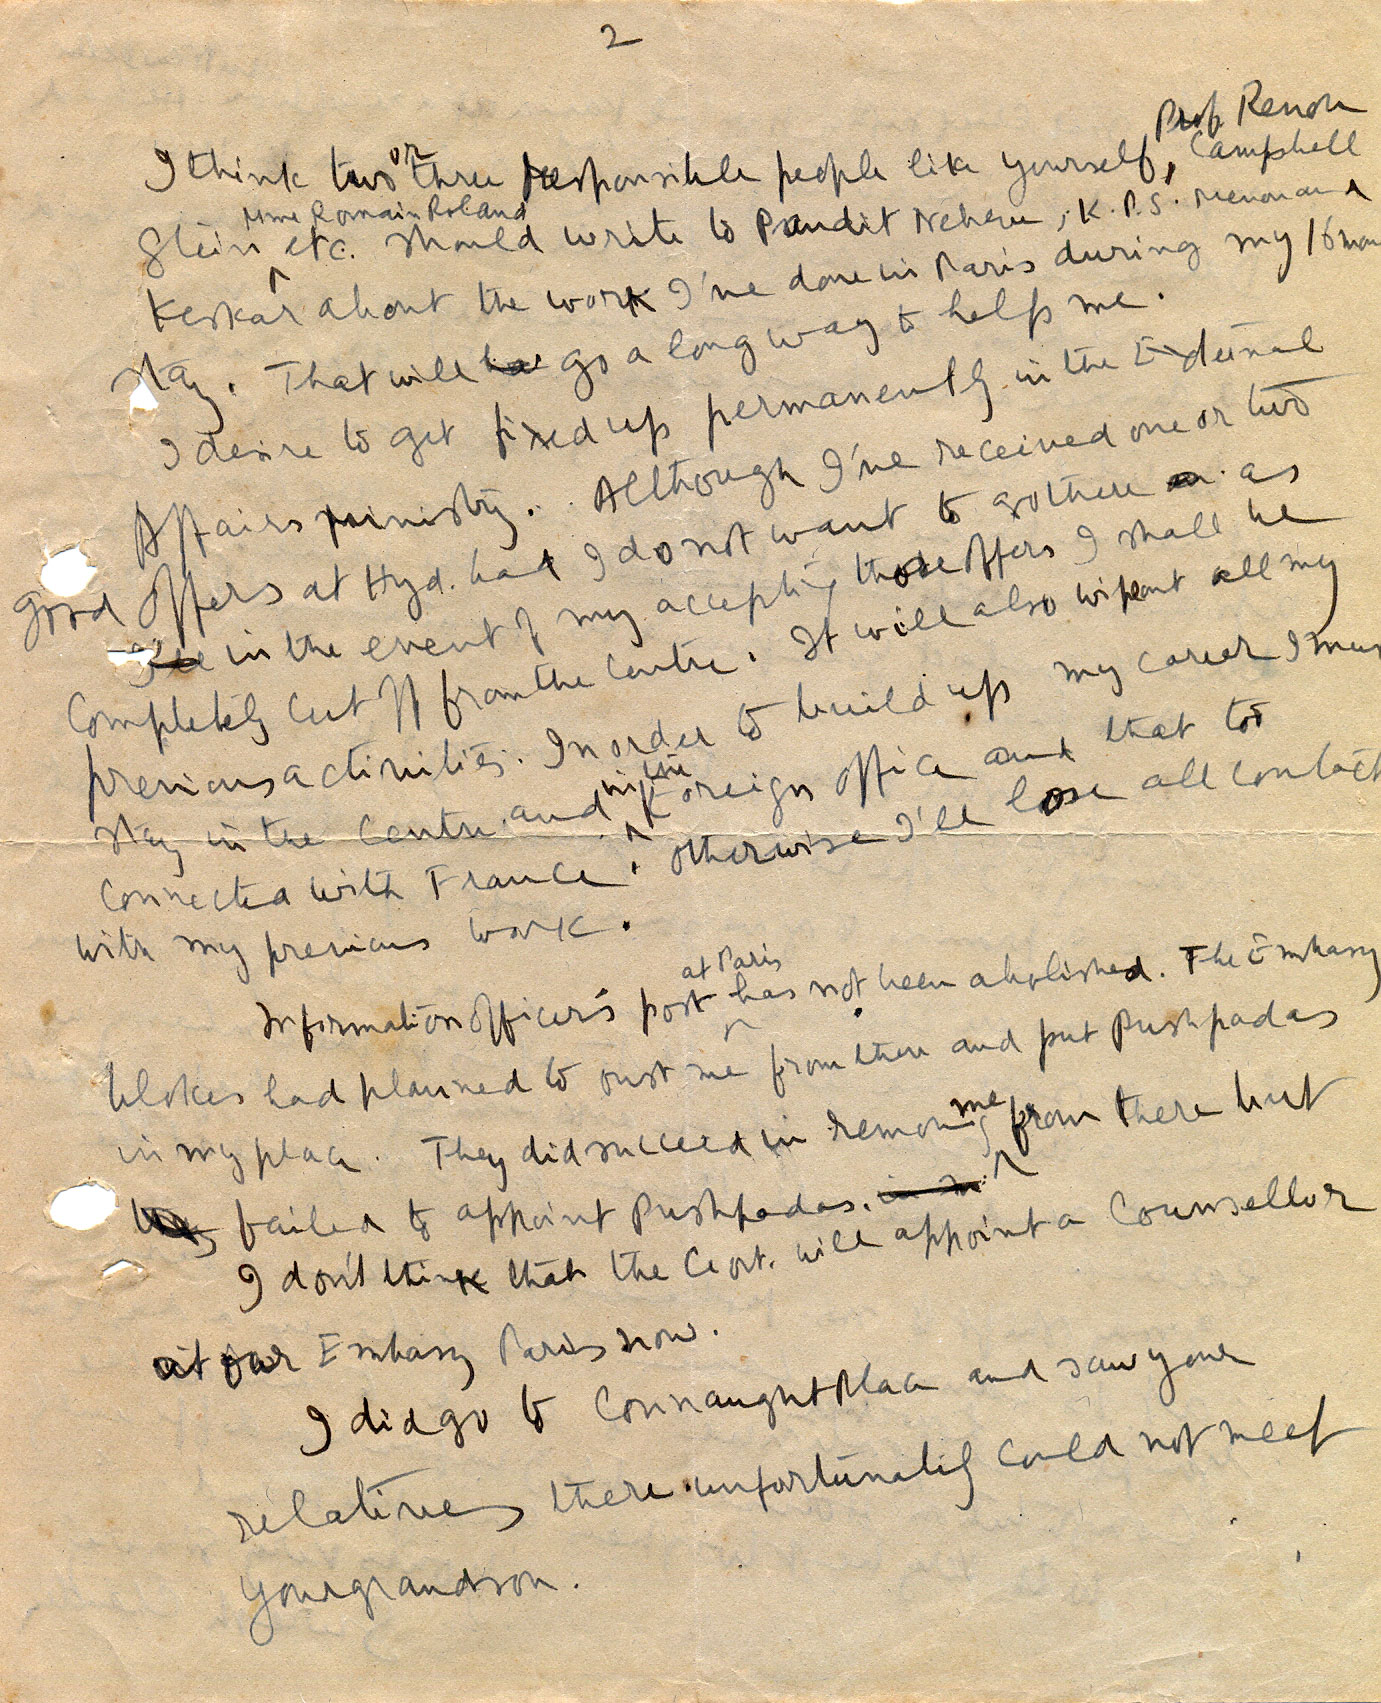 2
Prof Renou
I think two or three responsible people like yourself, Campbell
Stein Mme Romain Roland etc. should write to Pandit Nehru, K.P.S. Menon and
Keskar about the work I've done in Paris during my 16 mon
stay. That will go a long way to help me.
I desire to get fixed up permanently in the External
Affairs ministry. Although I've received one or two
good offers at Hyd. bad I do not want to go there as
in the event of my accepting those offers I shall be
completely cut off from the centre. It will also wipe out all my
previous activities. In order to build up my career I mus
stay in the Centre and in the Foreign office and that too
connected with France. Otherwise I'll lose all contact
with my previous work.
Information Officer's post at Paris has not been abolished. The Embassy
blokes had planned to oust me from there and put Pushpadas
in my place. They did succeed in removing me from there but
failed to appoint Pushpadas.
I don't think that the Govt. will appoint a Counsellor
at our Embassy Paris now.
I did go to Connaught Place and saw your
relatives there unfortunately could not meet
your grandson.